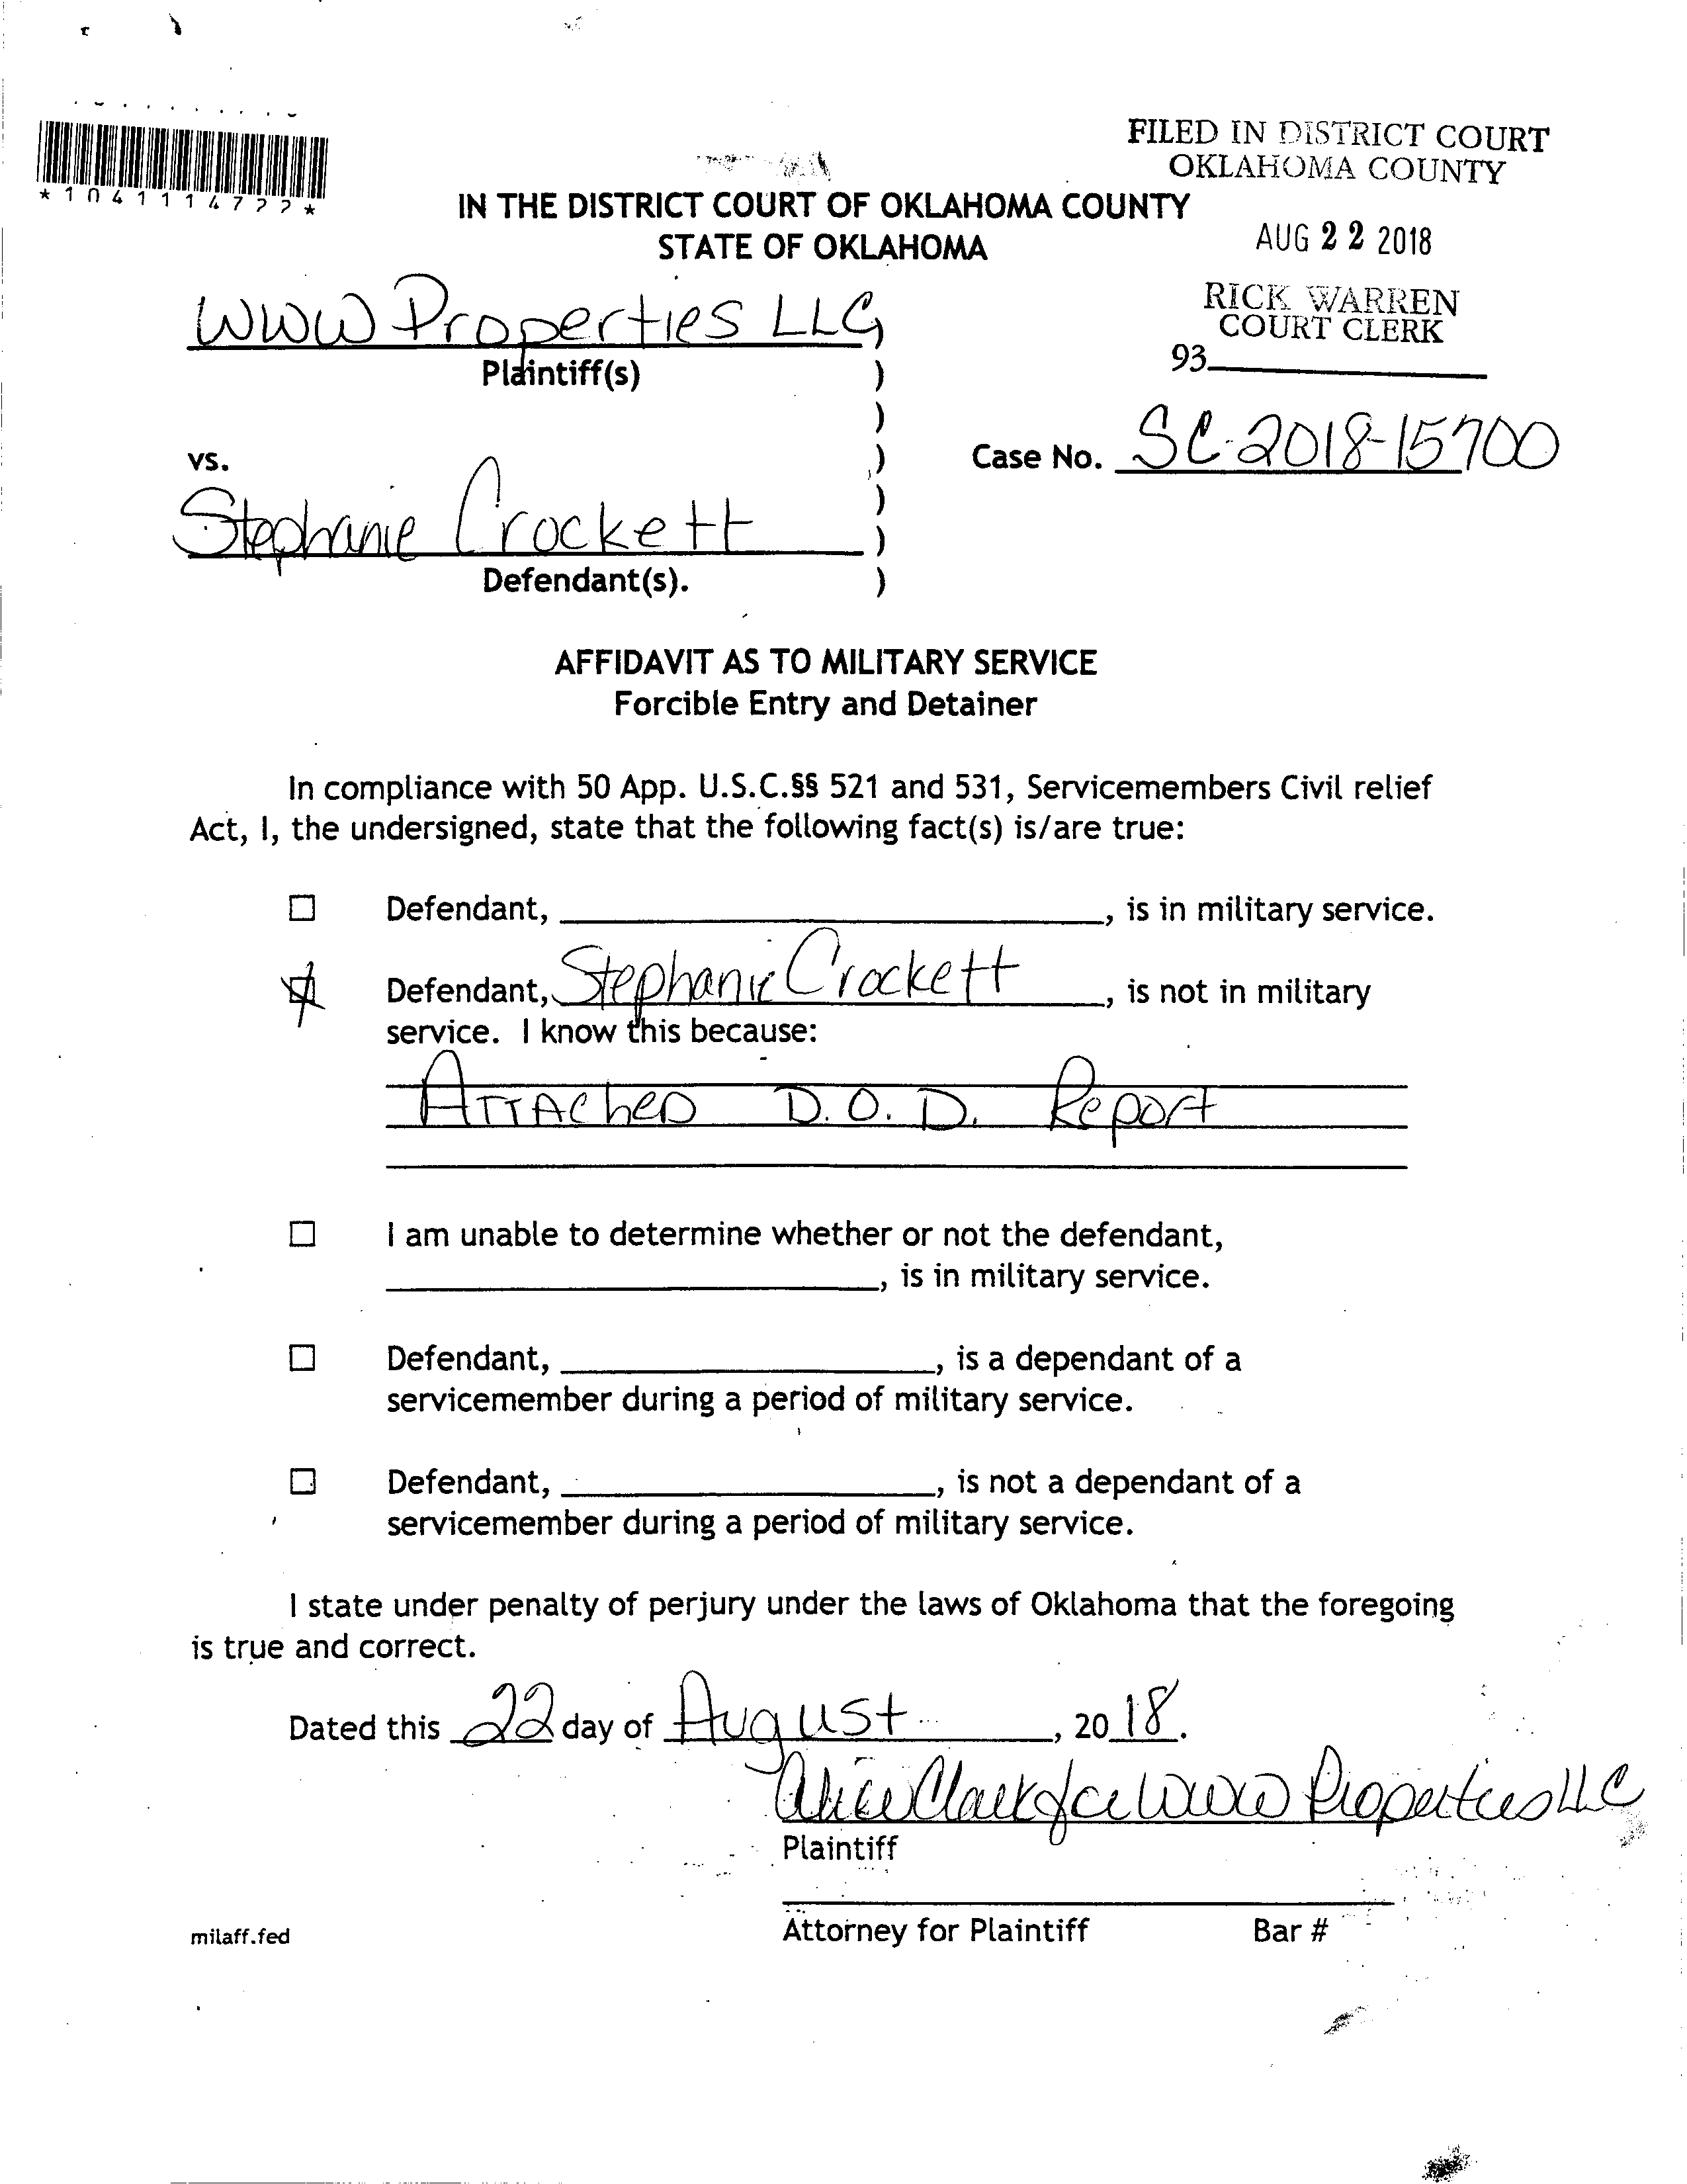 *1041114722*
FILED IN DISTRICT COURT
OKLAHOMA COUNTY
IN THE DISTRICT COURT OF OKLAHOMA COUNTY
STATE OF OKLAHOMA
AUG 22 2018
RICK WARREN
COURT CLERK
93
WWW Properties LLC )
Plaintiff(s) )
)
vs. )
Case No. SC-2018-15700
)
Stephanie Crockett )
Defendant(s). )
AFFIDAVIT AS TO MILITARY SERVICE
Forcible Entry and Detainer
In compliance with 50 App. U.S.C.§§ 521 and 531, Servicemembers Civil relief
Act, I, the undersigned, state that the following fact(s) is/are true:
Defendant, , is in military service.
Defendant, Stephanie Crockett, is not in military
service. I know this because:
Attached D.O.D. Report
I am unable to determine whether or not the defendant,
, is in military service.
Defendant, , is a dependant of a
servicemember during a period of military service.
Defendant, , is not a dependant of a
servicemember during a period of military service.
I state under penalty of perjury under the laws of Oklahoma that the foregoing
is true and correct.
Dated this 22 day of August, 2018.
Alice Clark for WWW Properties LLC
Plaintiff
Attorney for Plaintiff Bar #
milaff.fed